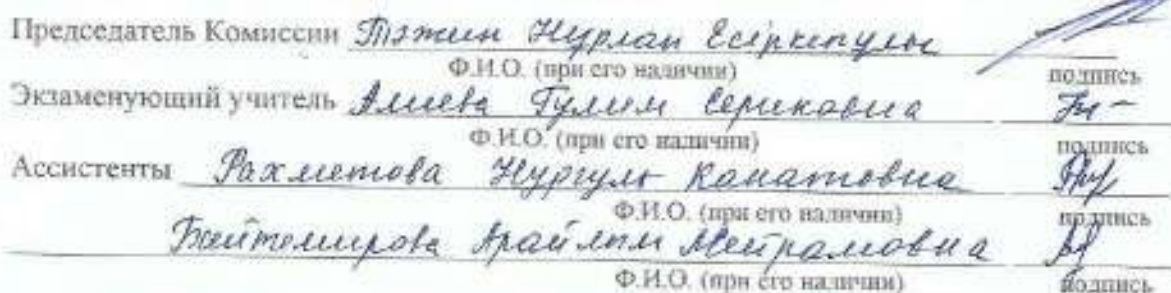 Председатель Комиссии Тәжин Нурлан Есіркепулы
Ф.И.О. (при его наличии) подпись
Экзаменующий учитель Алиева Гулим Сериковна
Ф.И.О. (при его наличии) подпись
Ассистенты Рахметова Нургуль Канатовна
Ф.И.О. (при его наличии) подпись
Бейтемирова Арайлым Мейрамовна
Ф.И.О. (при его наличии) подпись